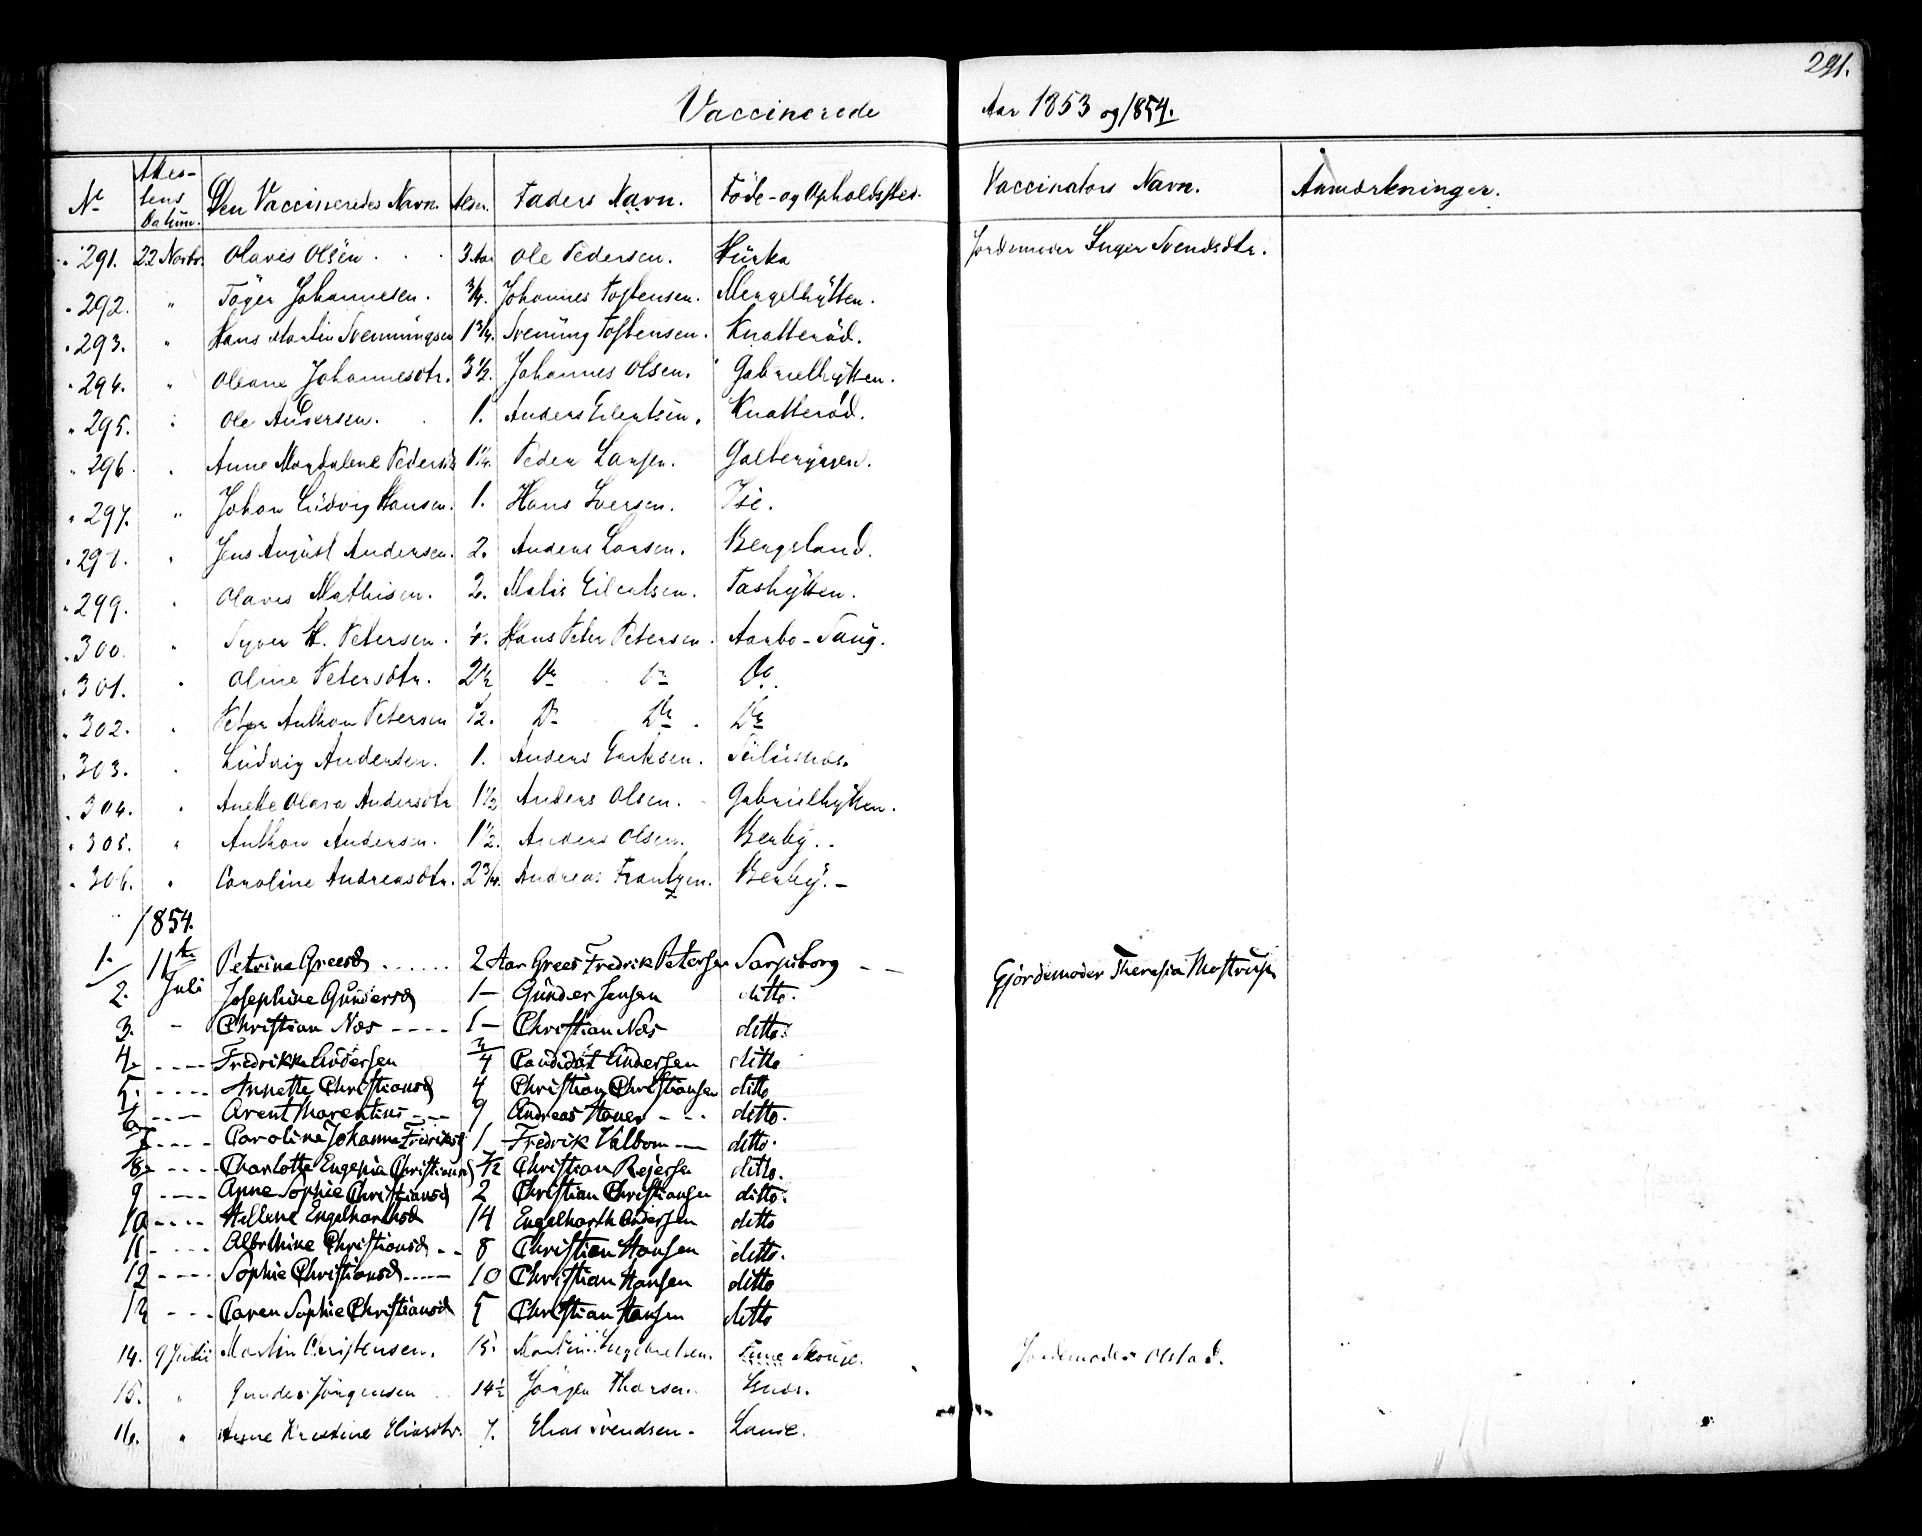 291.
Vaccinerede Aar 1853 og 1854.
No Attestens Datum. Den Vaccineredes Navn. Alder. Faders Navn. Föde- og Opholdssted. Vaccinators Navn. Anmærkninger.
291. 22 Novbr. Olaves Olsen 3 Aar Ole Pedersen. Hürka Jordemoder Inger Svendsdtr.
292. " Töger Johannesen. 3/4. Johannes Tostensen. Mengelhÿtten.
293. " Hans Martin Svenningsen 1 3/4. Svenüng Tostensen. Knatteröd.
294. " Oleane Johannesdtr. 3 1/2. Johannes Olsen. Gabrielhÿtten.
295. " Ole Andersen. 1. Anders Eilertsen. Knatteröd.
296. " Anne Magdalene Pedersdtr 1 1/4. Peder Larsen.
297. " Johan Lüdvig Hansen. 1. Hans Iversen. Ise.
298. " Jens Aügüst Andersen. 2. Anders Larsen. Bergsland.
299. " Olaves Mathisen. 2. Matis Eilertsen. Tashÿtten.
300. " Syver H. Petersen. Hans Peter Petersen. Aarbo-Taüg.
301. " Oline Petersdtr. 2 1/2 Do Do Do
302. " Peter Anthon Petersen 1/2. Do Do Do
303. " Lüdvig Andersen. 1. Anders Eriksen.
304. " Anette Olava Andersdtr 1 1/2 Anders Olsen. Gabrielhÿtten.
305. " Anthon Andersen. 1 1/2. Anders Olsen. Berbÿ.
306. " Caroline Andreasdtr. 2 3/4. Andreas Frantzen. Berbÿ.
1854.
1. 11te Juli Petrine Greesd 2 Aar Grees Fredrik Petersen Sarpsborg Gjordemoder Theresia Mostrup
2. Josephine Gündersd 1 Günder Jensen ditto.
3. " Christian Næs 1 Christian Næs ditto.
4. Fredrikke Andersen 3/4 Candidat Andersen ditto
5. Annette Christiansd 4 Christian Christiansen ditto
6. Arent Marentius 9 Andreas Haner ditto.
7. Caroline Johanne Fridriksd 1 Fredrik Valbom ditto.
8. Charlotte Engenia Christiansd 1/2 Christian Rejersen ditto.
9 Anne Sophie Christiansd 2 Christian Christiansen ditto.
10 Hellene Engelharthsd 14 Engelharth Andersen ditto
11 Albrthine Christiansd 8 Christian Hansen ditto.
12 Sophie Christiansd 10 Christian Hansen ditto
13 Caren Sophie Christiansd 5 Christian Hansen ditto
14. 9 Juli Martin Christensen. 15. Tune Jordemoder Olstad.
15. " Gunder Jörgensen 14 1/2 Jörgen Thorsen.
16. " Anne Kristine Eliasdtr. 7. Elias Svendsen. Lande.